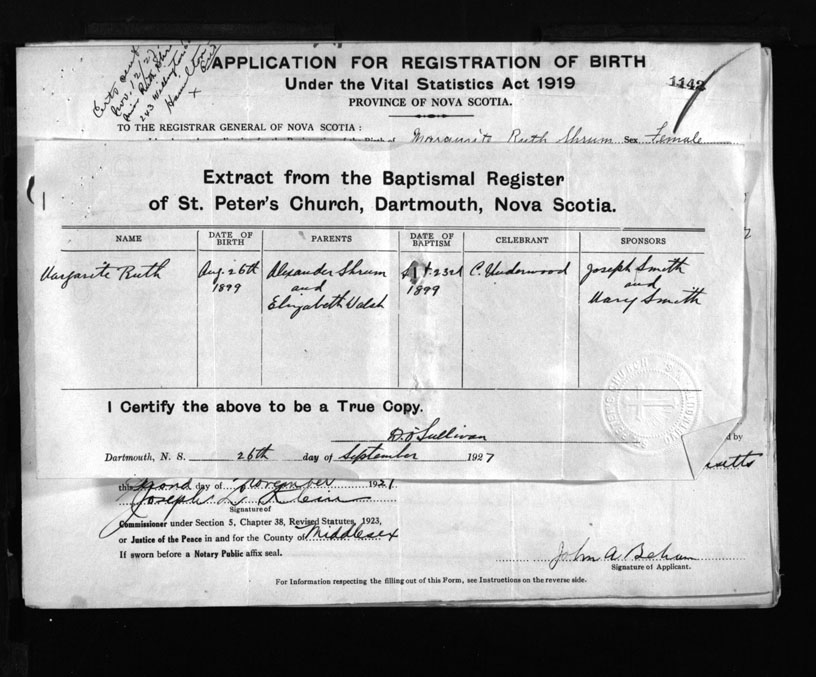 Certs sent
Nov. 12/27
Miss Ruth
243 Wellington
Hamilton
Ont
APPLICATION FOR REGISTRATION OF BIRTH
Under the Vital Statistics Act 1919
1142
PROVINCE OF NOVA SCOTIA.
TO THE REGISTRAR GENERAL OF NOVA SCOTIA :
Ruth Shrum Sex Female
Extract from the Baptismal Register
of St. Peter's Church, Dartmouth, Nova Scotia.
NAME DATE OF BIRTH PARENTS DATE OF BAPTISM CELEBRANT SPONSORS
Margarite Ruth Aug. 26th 1899 Alexander Shrum and Elizabeth Walsh 23rd 1899 C. Underwood Joseph Smith and Mary Smith
I Certify the above to be a True Copy.
D. O'Sullivan
Dartmouth, N. S. 26th day of September 1927
d by
setts
this second day of November 1927
Joseph L. Klein
Signature of
Commissioner under Section 5, Chapter 38, Revised Statutes, 1923,
or Justice of the Peace in and for the County of Middlesex
If sworn before a Notary Public affix seal.
John A.
Signature of Applicant.
For Information respecting the filling out of this Form, see Instructions on the reverse side.